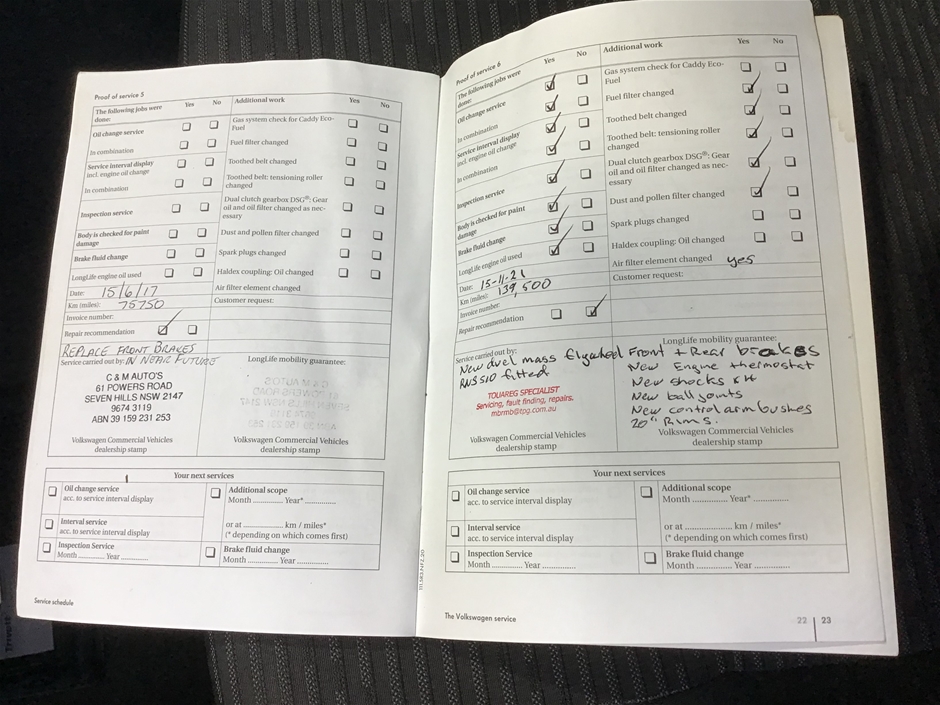 Proof of service 5
The following jobs were done:
Yes
No
Additional work
Yes
No
Oil change service
Gas system check for Caddy Eco-
Fuel
In combination
Fuel filter changed
Service interval display
incl. engine oil change
Toothed belt changed
In combination
Toothed belt: tensioning roller
changed
Inspection service
Dual clutch gearbox DSG®: Gear
oil and oil filter changed as nec-
essary
Body is checked for paint
damage
Dust and pollen filter changed
Brake fluid change
Spark plugs changed
LongLife engine oil used
Haldex coupling: Oil changed
Date: 15/6/17
Air filter element changed
Km (miles): 75750
Customer request:
Invoice number:
Repair recommendation
REPLACE FRONT BRAKES
Service carried out by: IN NEAR FUTURE
LongLife mobility guarantee:
C & M AUTO'S
61 POWERS ROAD
SEVEN HILLS NSW 2147
9674 3119
ABN 39 159 231 253
Volkswagen Commercial Vehicles
dealership stamp
Volkswagen Commercial Vehicles
dealership stamp
Your next services
Oil change service
acc. to service interval display
Additional scope
Month .............. Year* ..............
Interval service
acc. to service interval display
or at .................. km / miles*
(* depending on which comes first)
Inspection Service
Month ............ Year ............
Brake fluid change
Month ............ Year ............
Service schedule
Proof of service 6
The following jobs were
done:
Yes
No
Additional work
Yes
No
Oil change service
Gas system check for Caddy Eco-
Fuel
In combination
Fuel filter changed
Service interval display
incl. engine oil change
Toothed belt changed
In combination
Toothed belt: tensioning roller
changed
Inspection service
Dual clutch gearbox DSG®: Gear
oil and oil filter changed as nec-
essary
Body is checked for paint
damage
Dust and pollen filter changed
Brake fluid change
Spark plugs changed
LongLife engine oil used
Haldex coupling: Oil changed
Date: 15-11-21
Air filter element changed yes
Km (miles): 139,500
Customer request:
Invoice number:
Repair recommendation
Service carried out by:
LongLife mobility guarantee:
New duel mass flywheel Front + Rear brakes
fitted
New Engine thermostat
New shocks x4
New ball joints
New control arm bushes
20" Rims.
TOUAREG SPECIALIST
Servicing, fault finding, repairs.
mbrmb@tpg.com.au
Volkswagen Commercial Vehicles
dealership stamp
Volkswagen Commercial Vehicles
dealership stamp
Your next services
Oil change service
acc. to service interval display
Additional scope
Month .............. Year* ..............
Interval service
acc. to service interval display
or at .................. km / miles*
(* depending on which comes first)
Inspection Service
Month ............ Year ............
Brake fluid change
Month ............ Year ............
The Volkswagen service
22 | 23